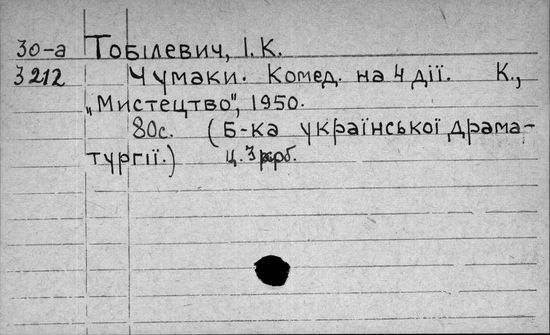 30-а Тобілевич, І. К.
3212 Чумаки. Комед. на 4 дії. К.,
„Мистецтво", 1950.
80с. (Б-ка української драма-
тургії.) Ц. 3